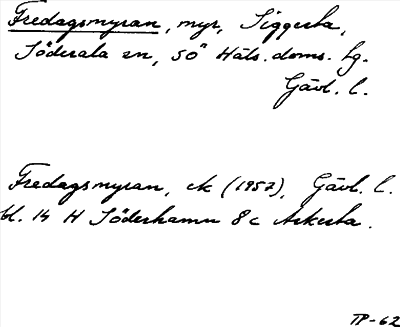 Fredagsmyran, myr, Siggesta,
Söderala sn, SÖ Häls. doms. lg.
Gävl. l.
Fredagsmyran, ek (1957), Gävl. l.
bl. 14 H Söderhamn 8c Askesta.
TP-62